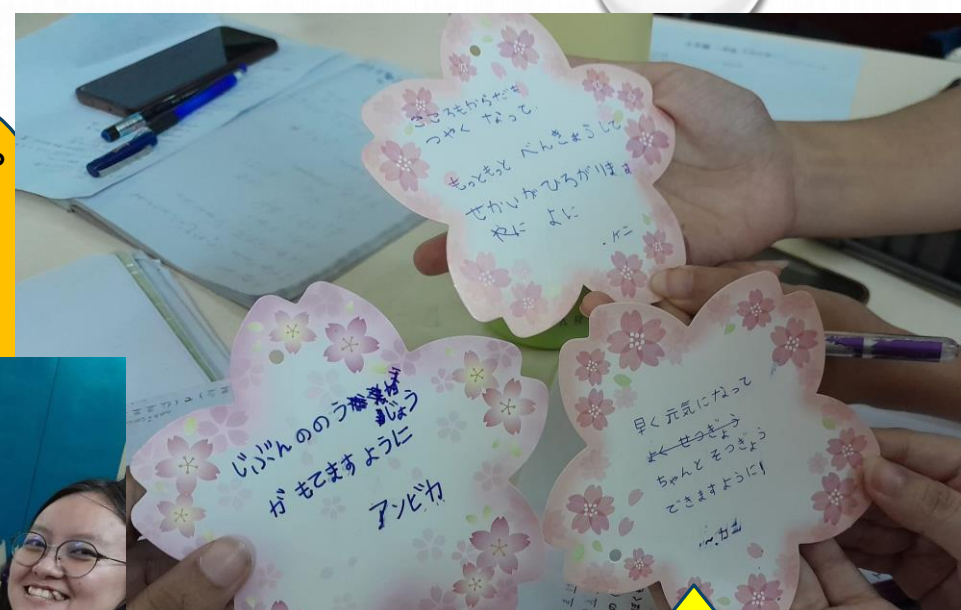 こころもからだも
つやく なって
もっともっと べんきょうして
せかいがひろがります
やに よに
. ケニ
じぶんののう
じょう
が もてますように
アンビカ
早く元気になって
ちゃんと そつぎょう
できますように!